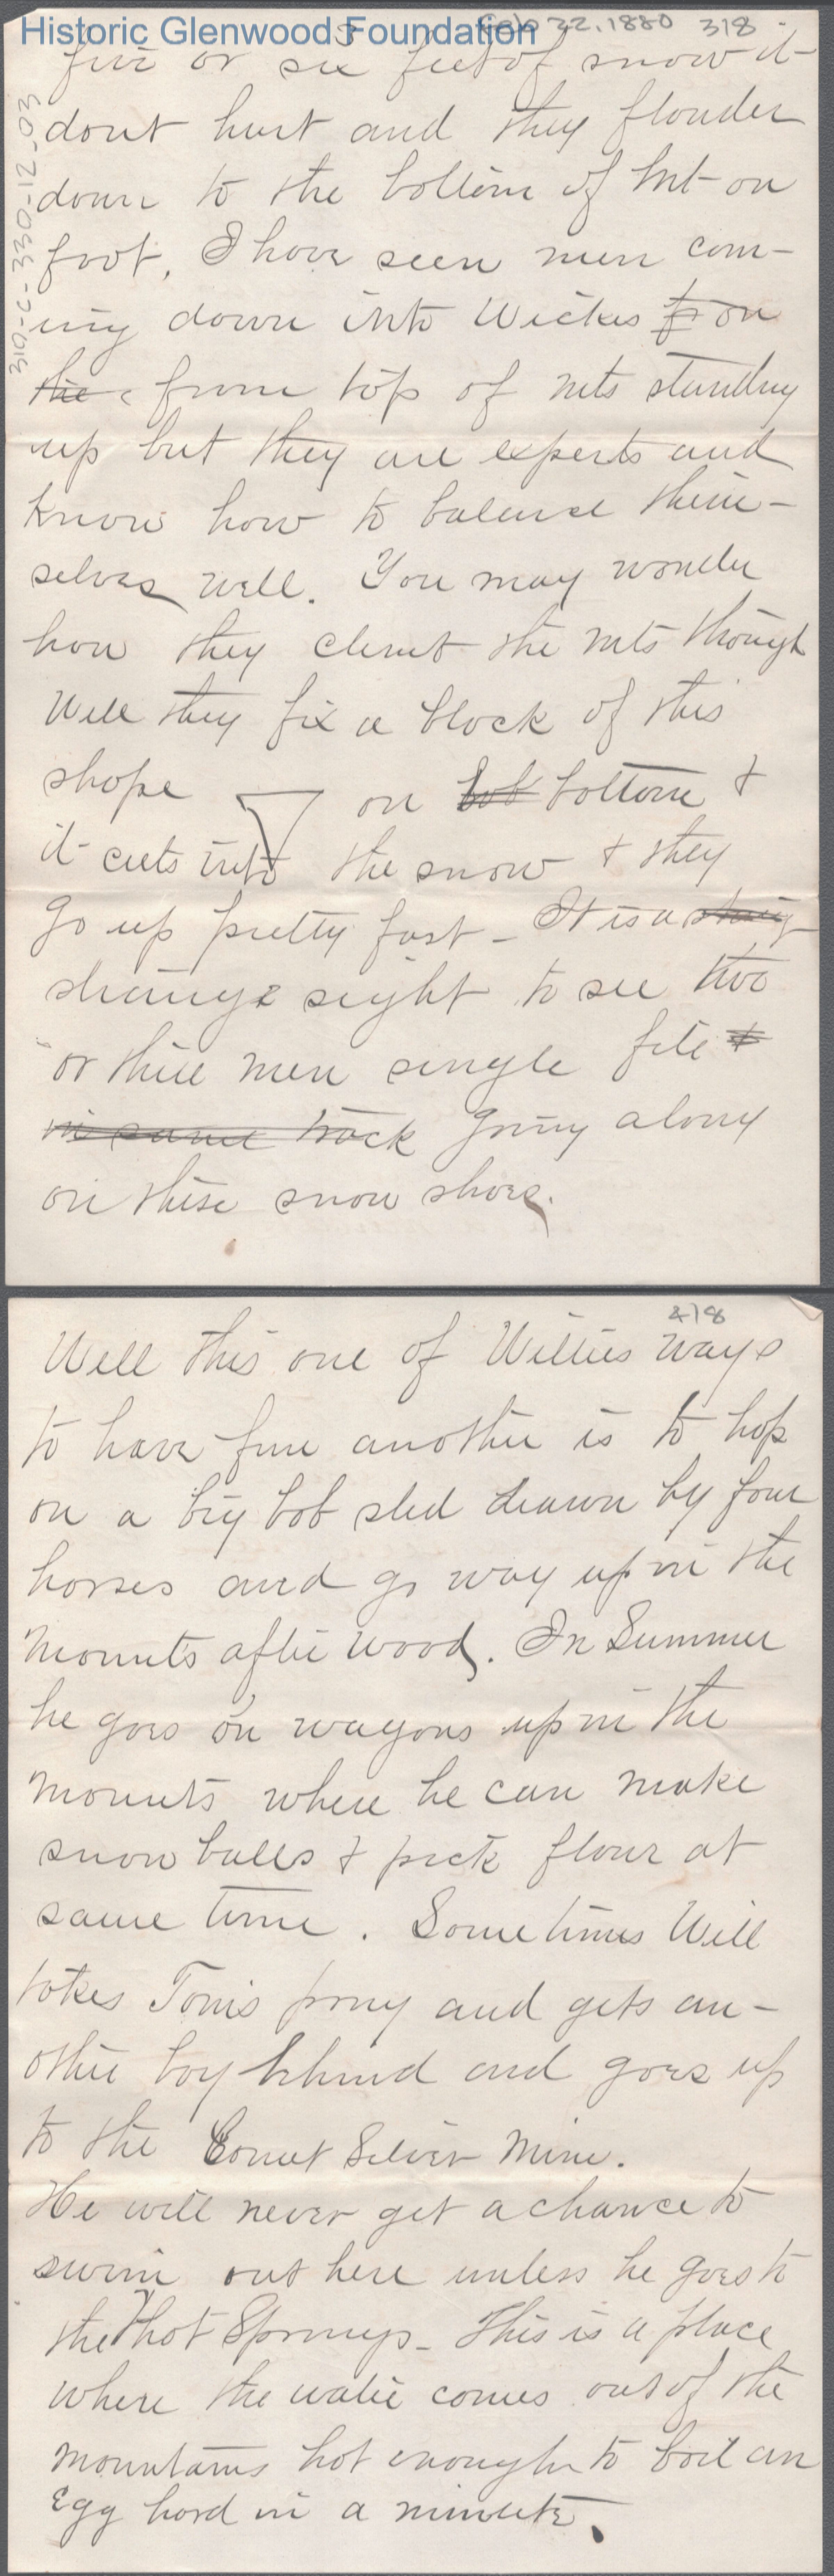 Historic Glenwood Foundation
Feb 22, 1880 318
5
310-C-330-12-03
five or six feet of snow it
dont hurt and they flounder
down to the bottom of Mt on
foot. I have seen men com-
ing down into Wickes fr on
the from top of mts standing
up but they are experts and
know how to balance them-
selves well. You may wonder
how they climb the mts though
Well they fix a block of this
shape on bob bottom &
it cuts into the snow & they
go up pretty fast - It is a strang
strange sight to see two
or three men single file &
in same track going along
on these snow shoes.
418
Well this one of Willies ways
to have fun another is to hop
on a big bob sled drawn by four
horses and go way up in the
mounts after wood. In Summer
he goes on wagons up in the
mounts where he can make
snow balls & pick flour at
same time. Sometimes Will
takes Tom's pony and gets an-
other boy behind and goes up
to the Comet Silver Mine.
He will never get a chance to
swim out here unless he goes to
the hot Springs - This is a place
where the water comes out of the
mountains hot enough to boil an
Egg hard in a minute.